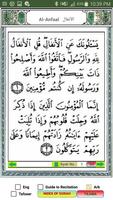 10:39 PM
Al-Anfaal الأنفال
يَسْـَٔلُونَكَ عَنِ ٱلْأَنفَالِ قُلِ ٱلْأَنفَالُ
لِلَّهِ وَٱلرَّسُولِ فَٱتَّقُوا۟ ٱللَّهَ وَأَصْلِحُوا۟
ذَاتَ بَيْنِكُمْ وَأَطِيعُوا۟ ٱللَّهَ وَرَسُولَهُۥٓ
إِن كُنتُم مُّؤْمِنِينَ ١ إِنَّمَا ٱلْمُؤْمِنُونَ
ٱلَّذِينَ إِذَا ذُكِرَ ٱللَّهُ وَجِلَتْ قُلُوبُهُمْ
وَإِذَا تُلِيَتْ عَلَيْهِمْ ءَايَٰتُهُۥ زَادَتْهُمْ
إِيمَٰنًا وَعَلَىٰ رَبِّهِمْ يَتَوَكَّلُونَ ٢
Eng Guide to Recitation Arb
INDEX OF SURAH